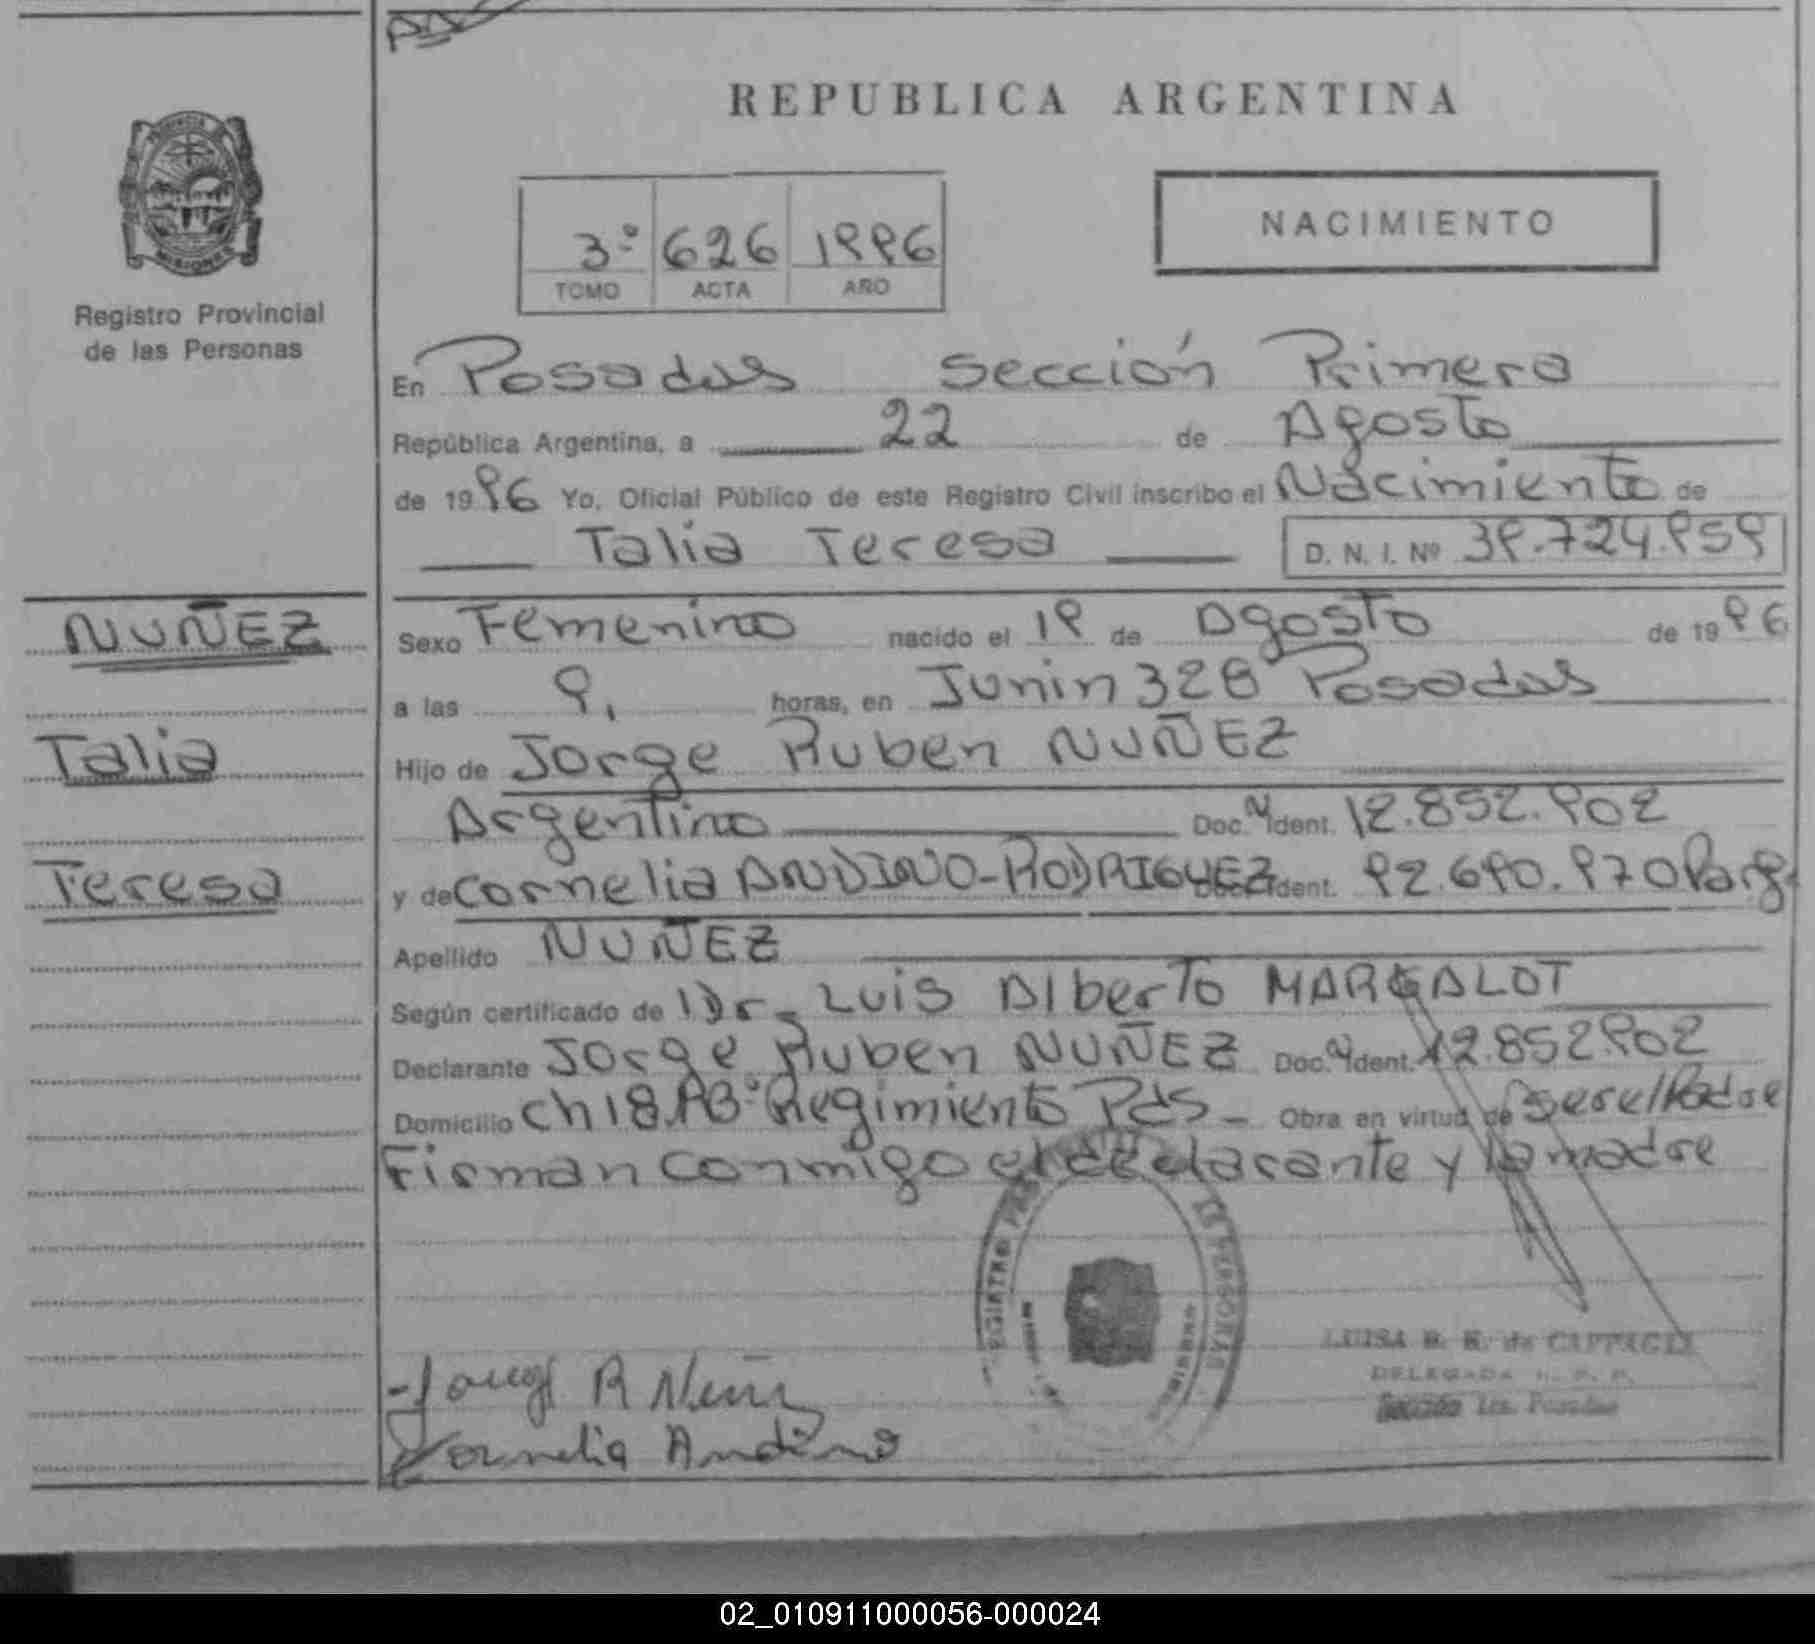 REPUBLICA ARGENTINA
PROVINCIA DE
MISIONES
Registro Provincial
de las Personas
3º 626 1996
TOMO ACTA AÑO
NACIMIENTO
En Posadas Sección Primera
República Argentina, a 22 de Agosto
de 1996 Yo, Oficial Público de este Registro Civil inscribo el Nacimiento de
Talia Teresa D. N. I. Nº 39.724.959
NUÑEZ
Talia
Teresa
Sexo Femenino nacido el 19 de Agosto de 1996
a las 9, horas, en Junin 328 Posadas
Hijo de Jorge Ruben NUÑEZ
Argentino Doc. N Ident. 12.852.902
y de Cornelia ANDINO-RODRIGUEZ Doc. Ident. 92.690.970 Parg
Apellido NUÑEZ
Según certificado de Dr. Luis Alberto MARGALOT
Declarante Jorge Ruben NUÑEZ Doc. N Ident. 12.852.902
Domicilio Ch 18 Regimiento Pdas - Obra en virtud de ser el Padre
Firman conmigo el declarante y la madre
REGISTRO DE LAS PERSONAS
Jorge R Nuñ
Cornelia Andino
LUISA de
DELEGADA R. P. P.
Sección 1ra. Posadas
02_010911000056-000024